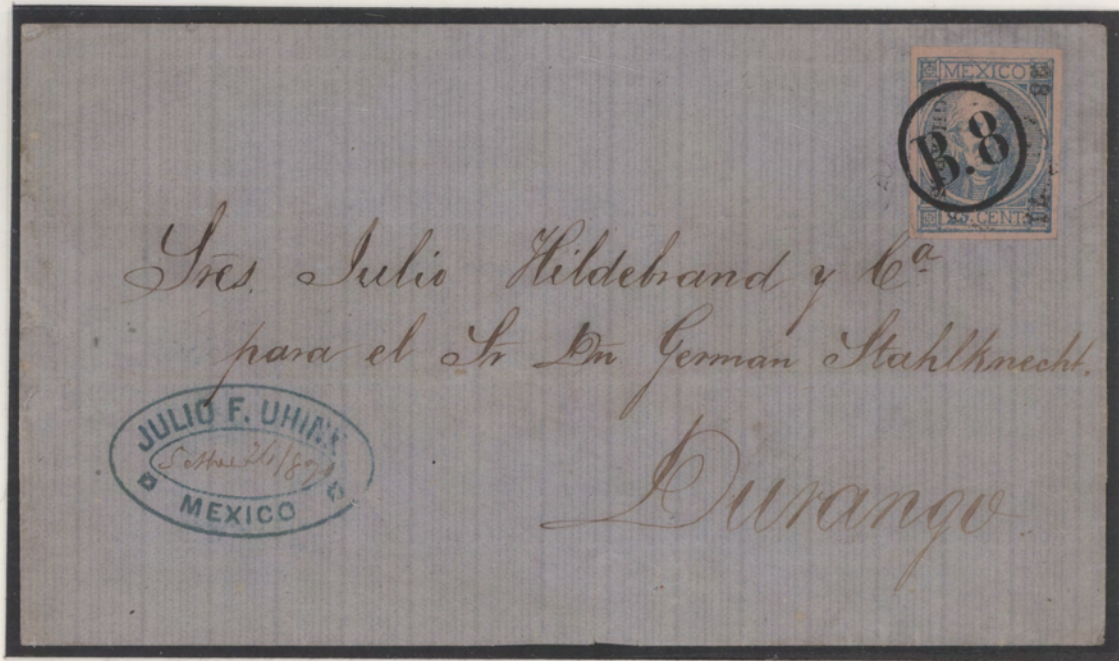 MEXICO
B.8
25 CENT
Sres. Julio Hildebrand y Ca
para el Sr Dn German Stahlknecht.
Durango
JULIO F. UHINK
MEXICO